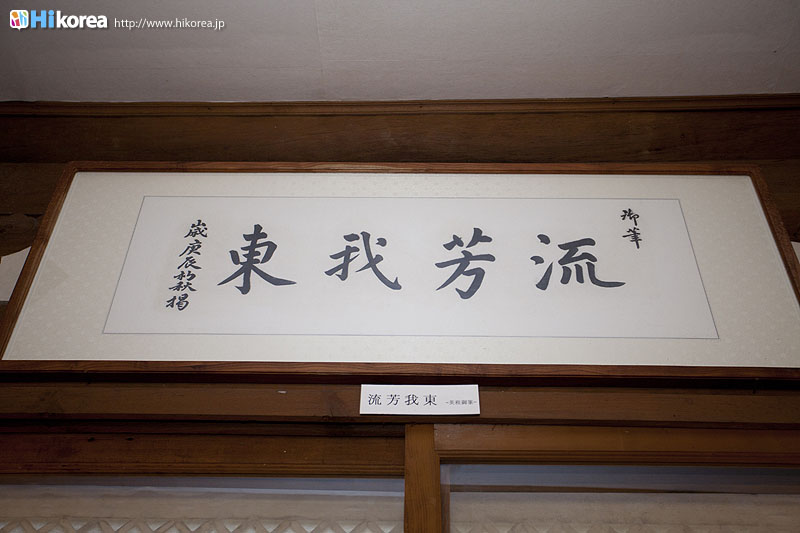 Hikorea http://www.hikorea.jp
御筆
流芳我東
歲庚辰初秋揭
流芳我東